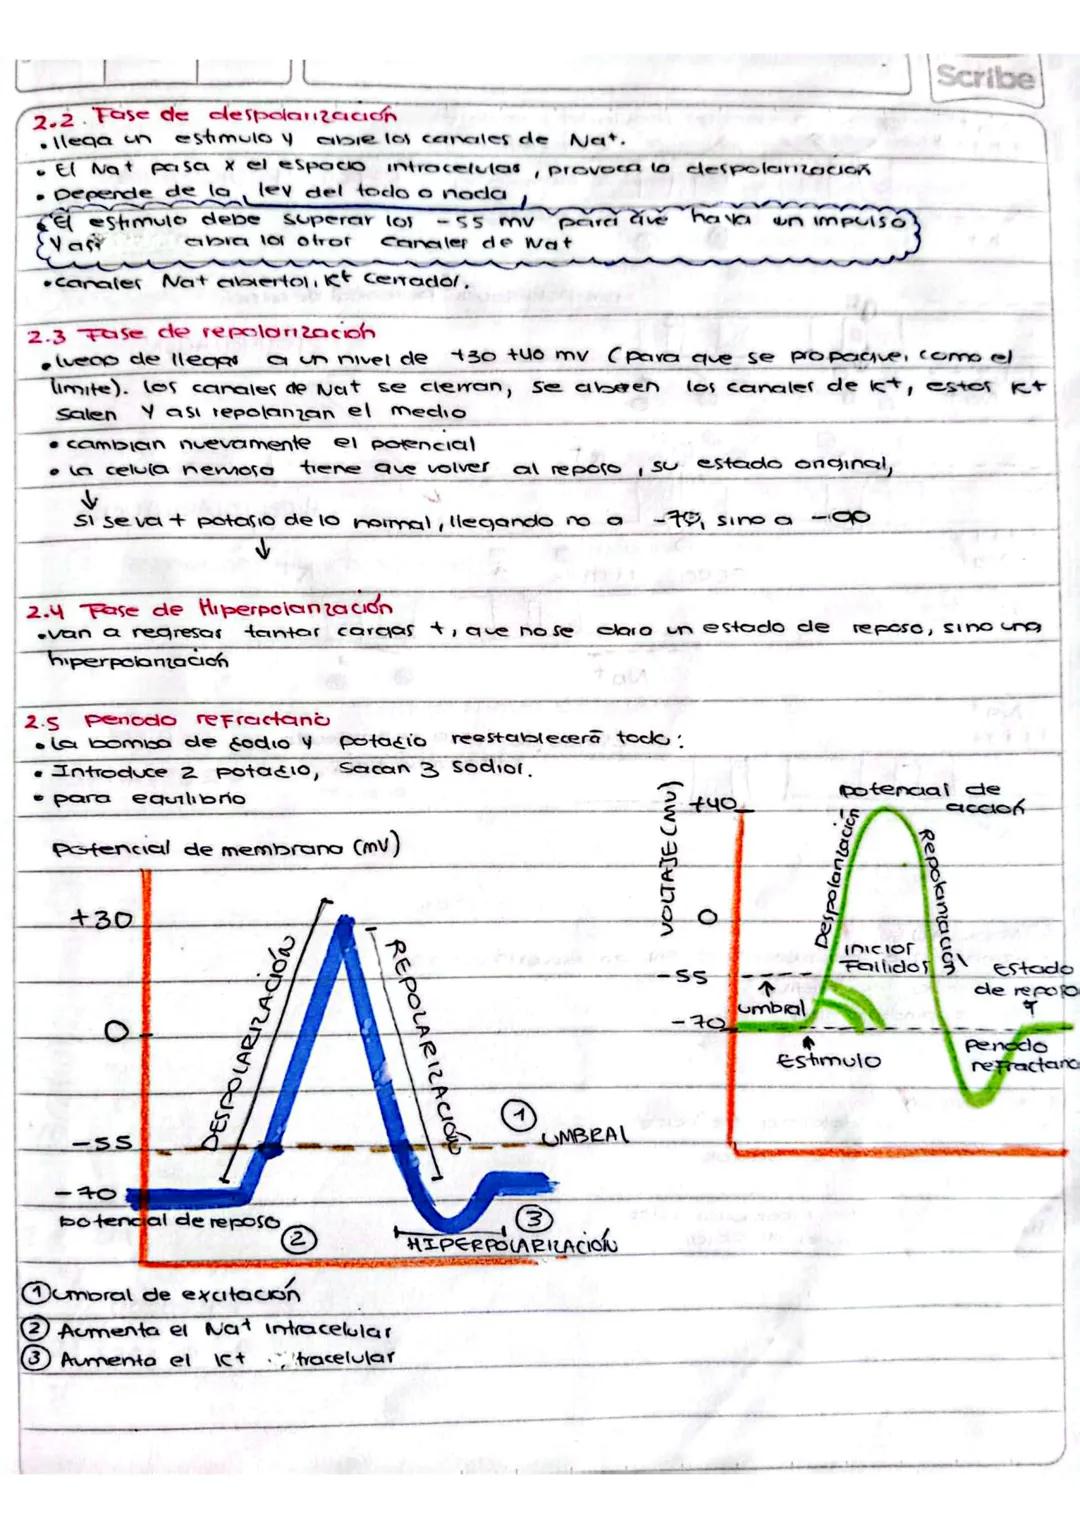 Scribe
2.2. Fase de despolarización
• llega un estimulo y abre los canales de Na+.
• El Na+ pasa x el espacio intracelular, provoca la despolarización
• Depende de la ley del todo o nada,
El estimulo debe superar los -55 mv para que haya un impulso
y así abra los otros canales de Na+
• canales Na+ abiertos, K+ cerrados.
2.3 Fase de repolarización
• luego de llegar a un nivel de +30 +40 mv (para que se propague, como el
limite). los canales de Na+ se cierran, se abren los canales de K+, estos K+
salen y asi repolarizan el medio
• cambian nuevamente el potencial
• la celula nerviosa tiene que volver al reposo, su estado original,
↓
si se va + potasio de lo normal, llegando no a -70, sino a -90
↓
2.4 Fase de Hiperpolarización
• van a regresar tantas cargas +, que no se dara un estado de reposo, sino una
hiperpolarización
2.5 Periodo refractario
• la bomba de sodio y potasio reestablecerá todo:
• Introduce 2 potasio, sacan 3 sodios.
• para equilibrio
Potencial de membrana (mV)
+30
0
-55
-70
DESPOLARIZACIÓN
REPOLARIZACIÓN
1
UMBRAL
potencial de reposo
2
3
HIPERPOLARIZACIÓN
VOLTAJE (mV)
+40
0
-55
-70
potencial de
acción
Despolarización
Repolarización
inicios
Fallidos
umbral
Estimulo
Estado
de reposo
periodo
refractario
1 umbral de excitación
2 Aumenta el Na+ intracelular
3 Aumenta el K+